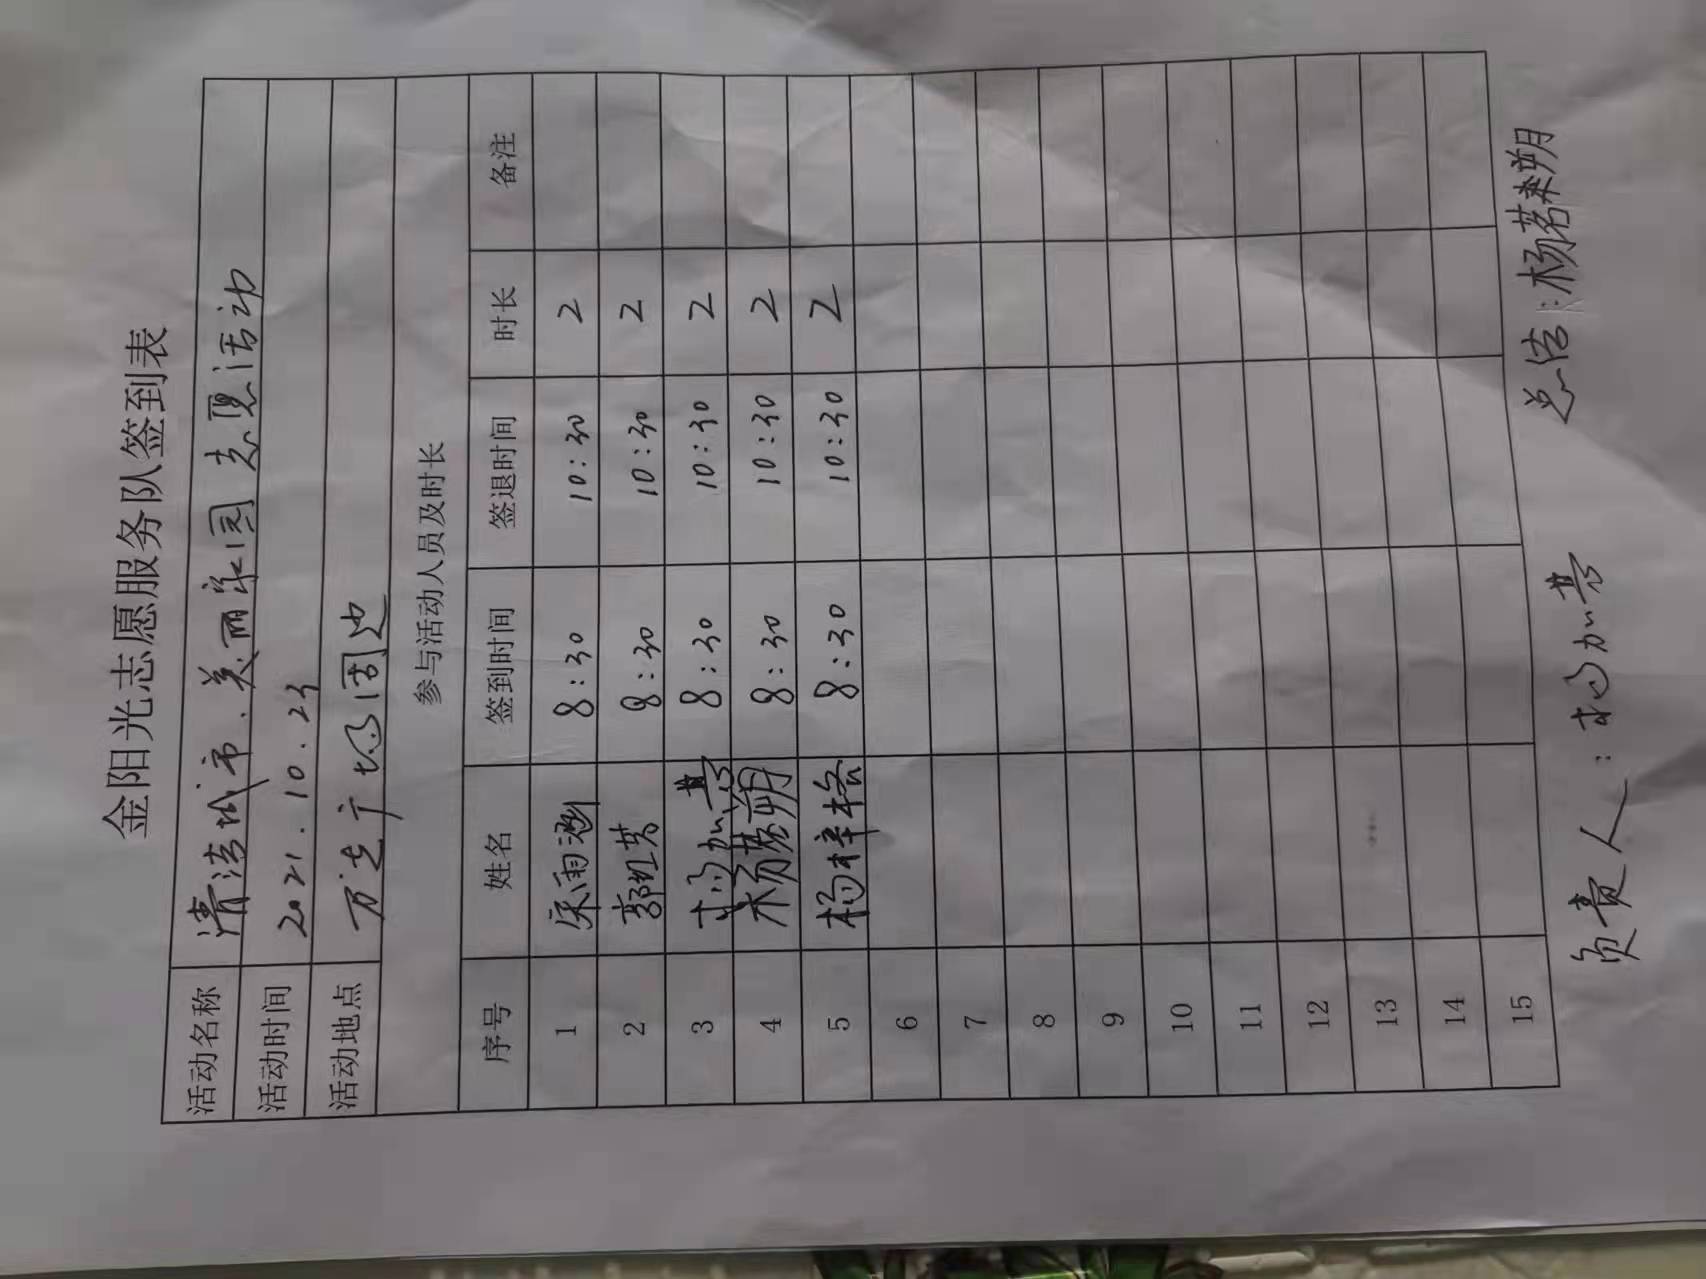 金阳光志愿服务队签到表
活动名称 清洁城市.美丽家园志愿活动
活动时间 2021.10.23
活动地点 万达广场周边
参与活动人员及时长
序号 姓名 签到时间 签退时间 时长 备注
1 雨涵 8:30 10:30 2
2 郭 8:30 10:30 2
3 杨加喜 8:30 10:30 2
4 杨茗朔 8:30 10:30 2
5 杨梓格 8:30 10:30 2
6
7
8
9
10
11
12
13
14
15
负责人:杨加喜 总结:杨茗朔